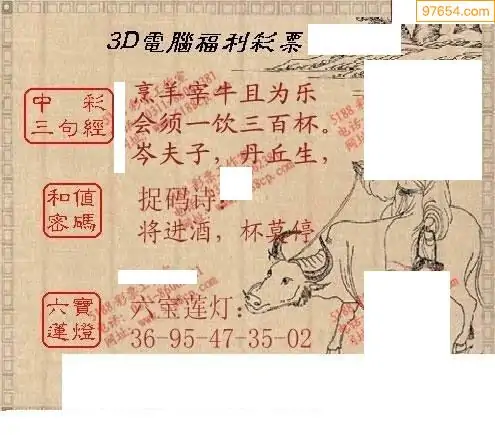 97654.com
3D電腦福利彩票
中彩
三句經
烹羊宰牛且为乐
会须一饮三百杯。
岑夫子，丹丘生，
和值
密碼
捉码诗：
将进酒，杯莫停
六寶
蓮燈
六宝莲灯：
36-95-47-35-02